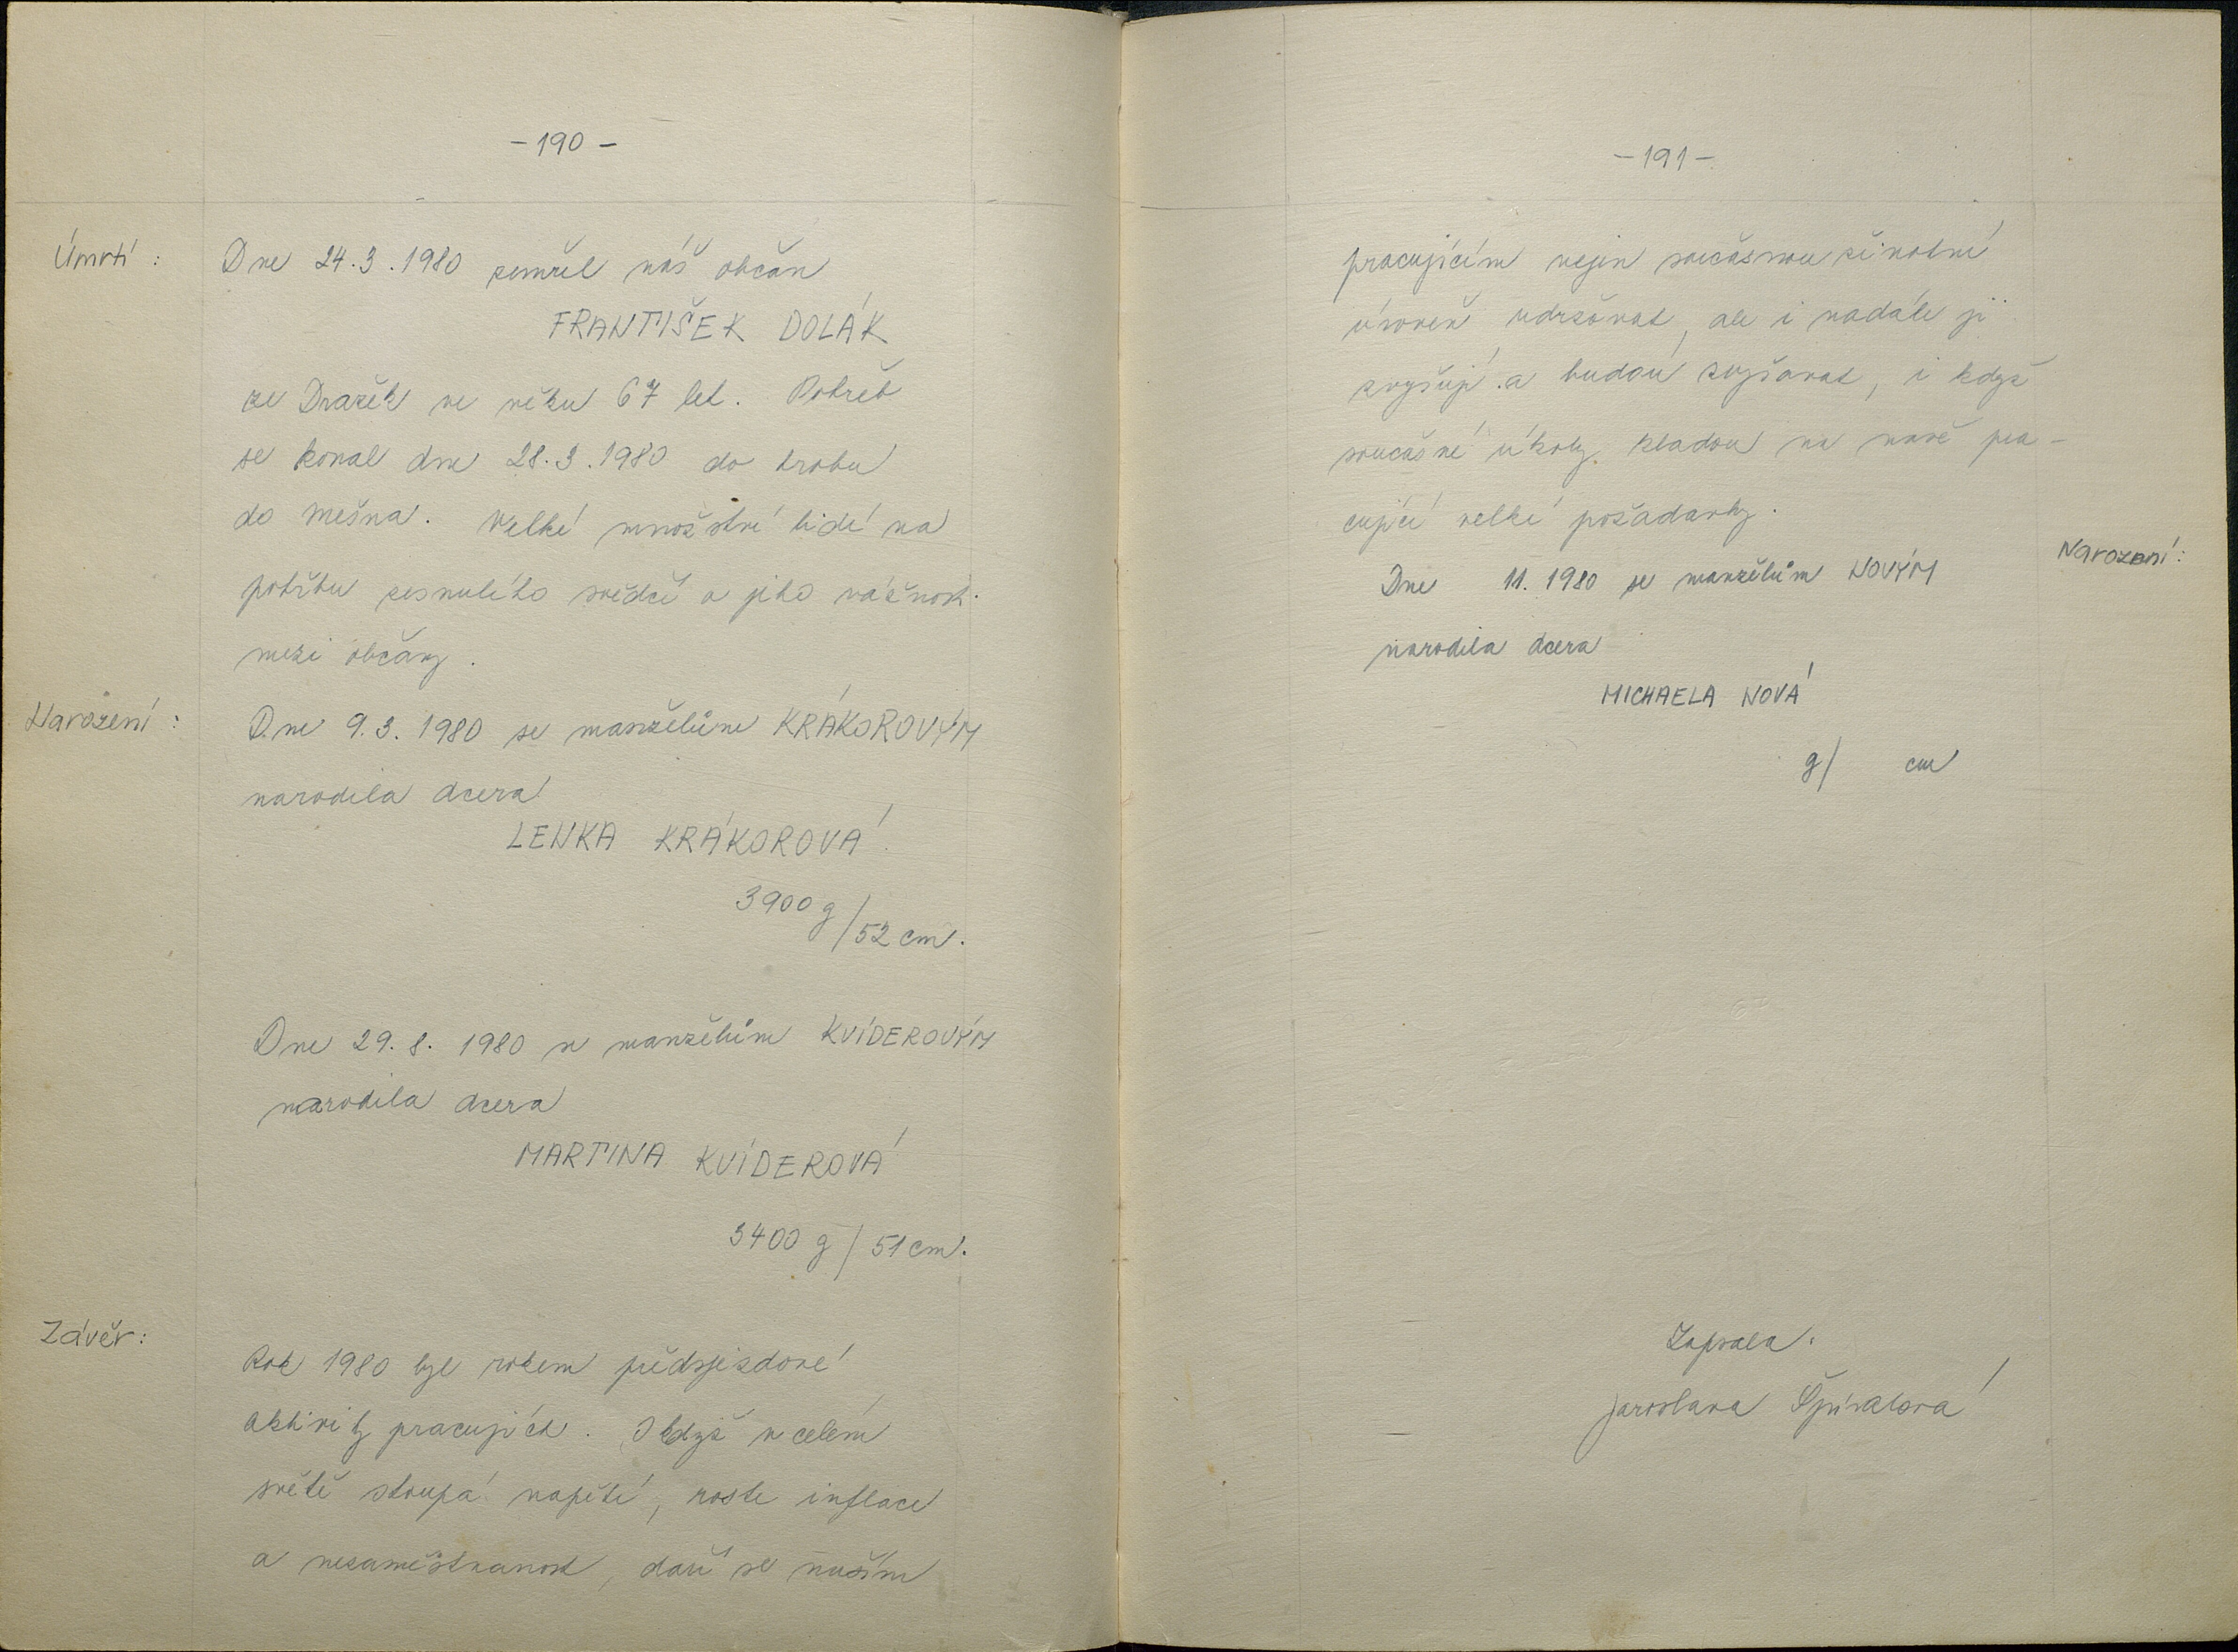 - 190 -
Úmrtí :
Dne 24.3.1980 zemřel náš občan
FRANTIŠEK DOLÁK
ze Dražek ve věku 67 let. Pohřeb
se konal dne 28.3.1980 do hrobu
do Mešna. Velké množství lidí na
pohřbu zesnulého svědčí o jeho vážnosti
mezi občany.
Narození :
Dne 9.3. 1980 se manželům KRÁKOROVÝM
narodila dcera
LENKA KRÁKOROVÁ.
3900 g/52 cm.
Dne 29.8. 1980 se manželům KVÍDEROVÝM
narodila dcera
MARTINA KVÍDEROVÁ
3400 g / 51 cm.
Závěr:
Rok 1980 byl rokem předsjezdové
aktivity pracujících. I když v celém
světě stoupá napětí, roste inflace
a nezaměstnanost, daří se našim
- 191 -
pracujícím nejen současnou životní
úroveň udržovat, ale i nadále ji
zvyšují a budou zvyšovat, i když
současné úkoly kladou na naše pra-
cující velké požadavky.
Narození:
Dne 11. 1980 se manželům NOVÝM
narodila dcera
MICHAELA NOVÁ
g/ cm
Zapsala.
Jaroslava